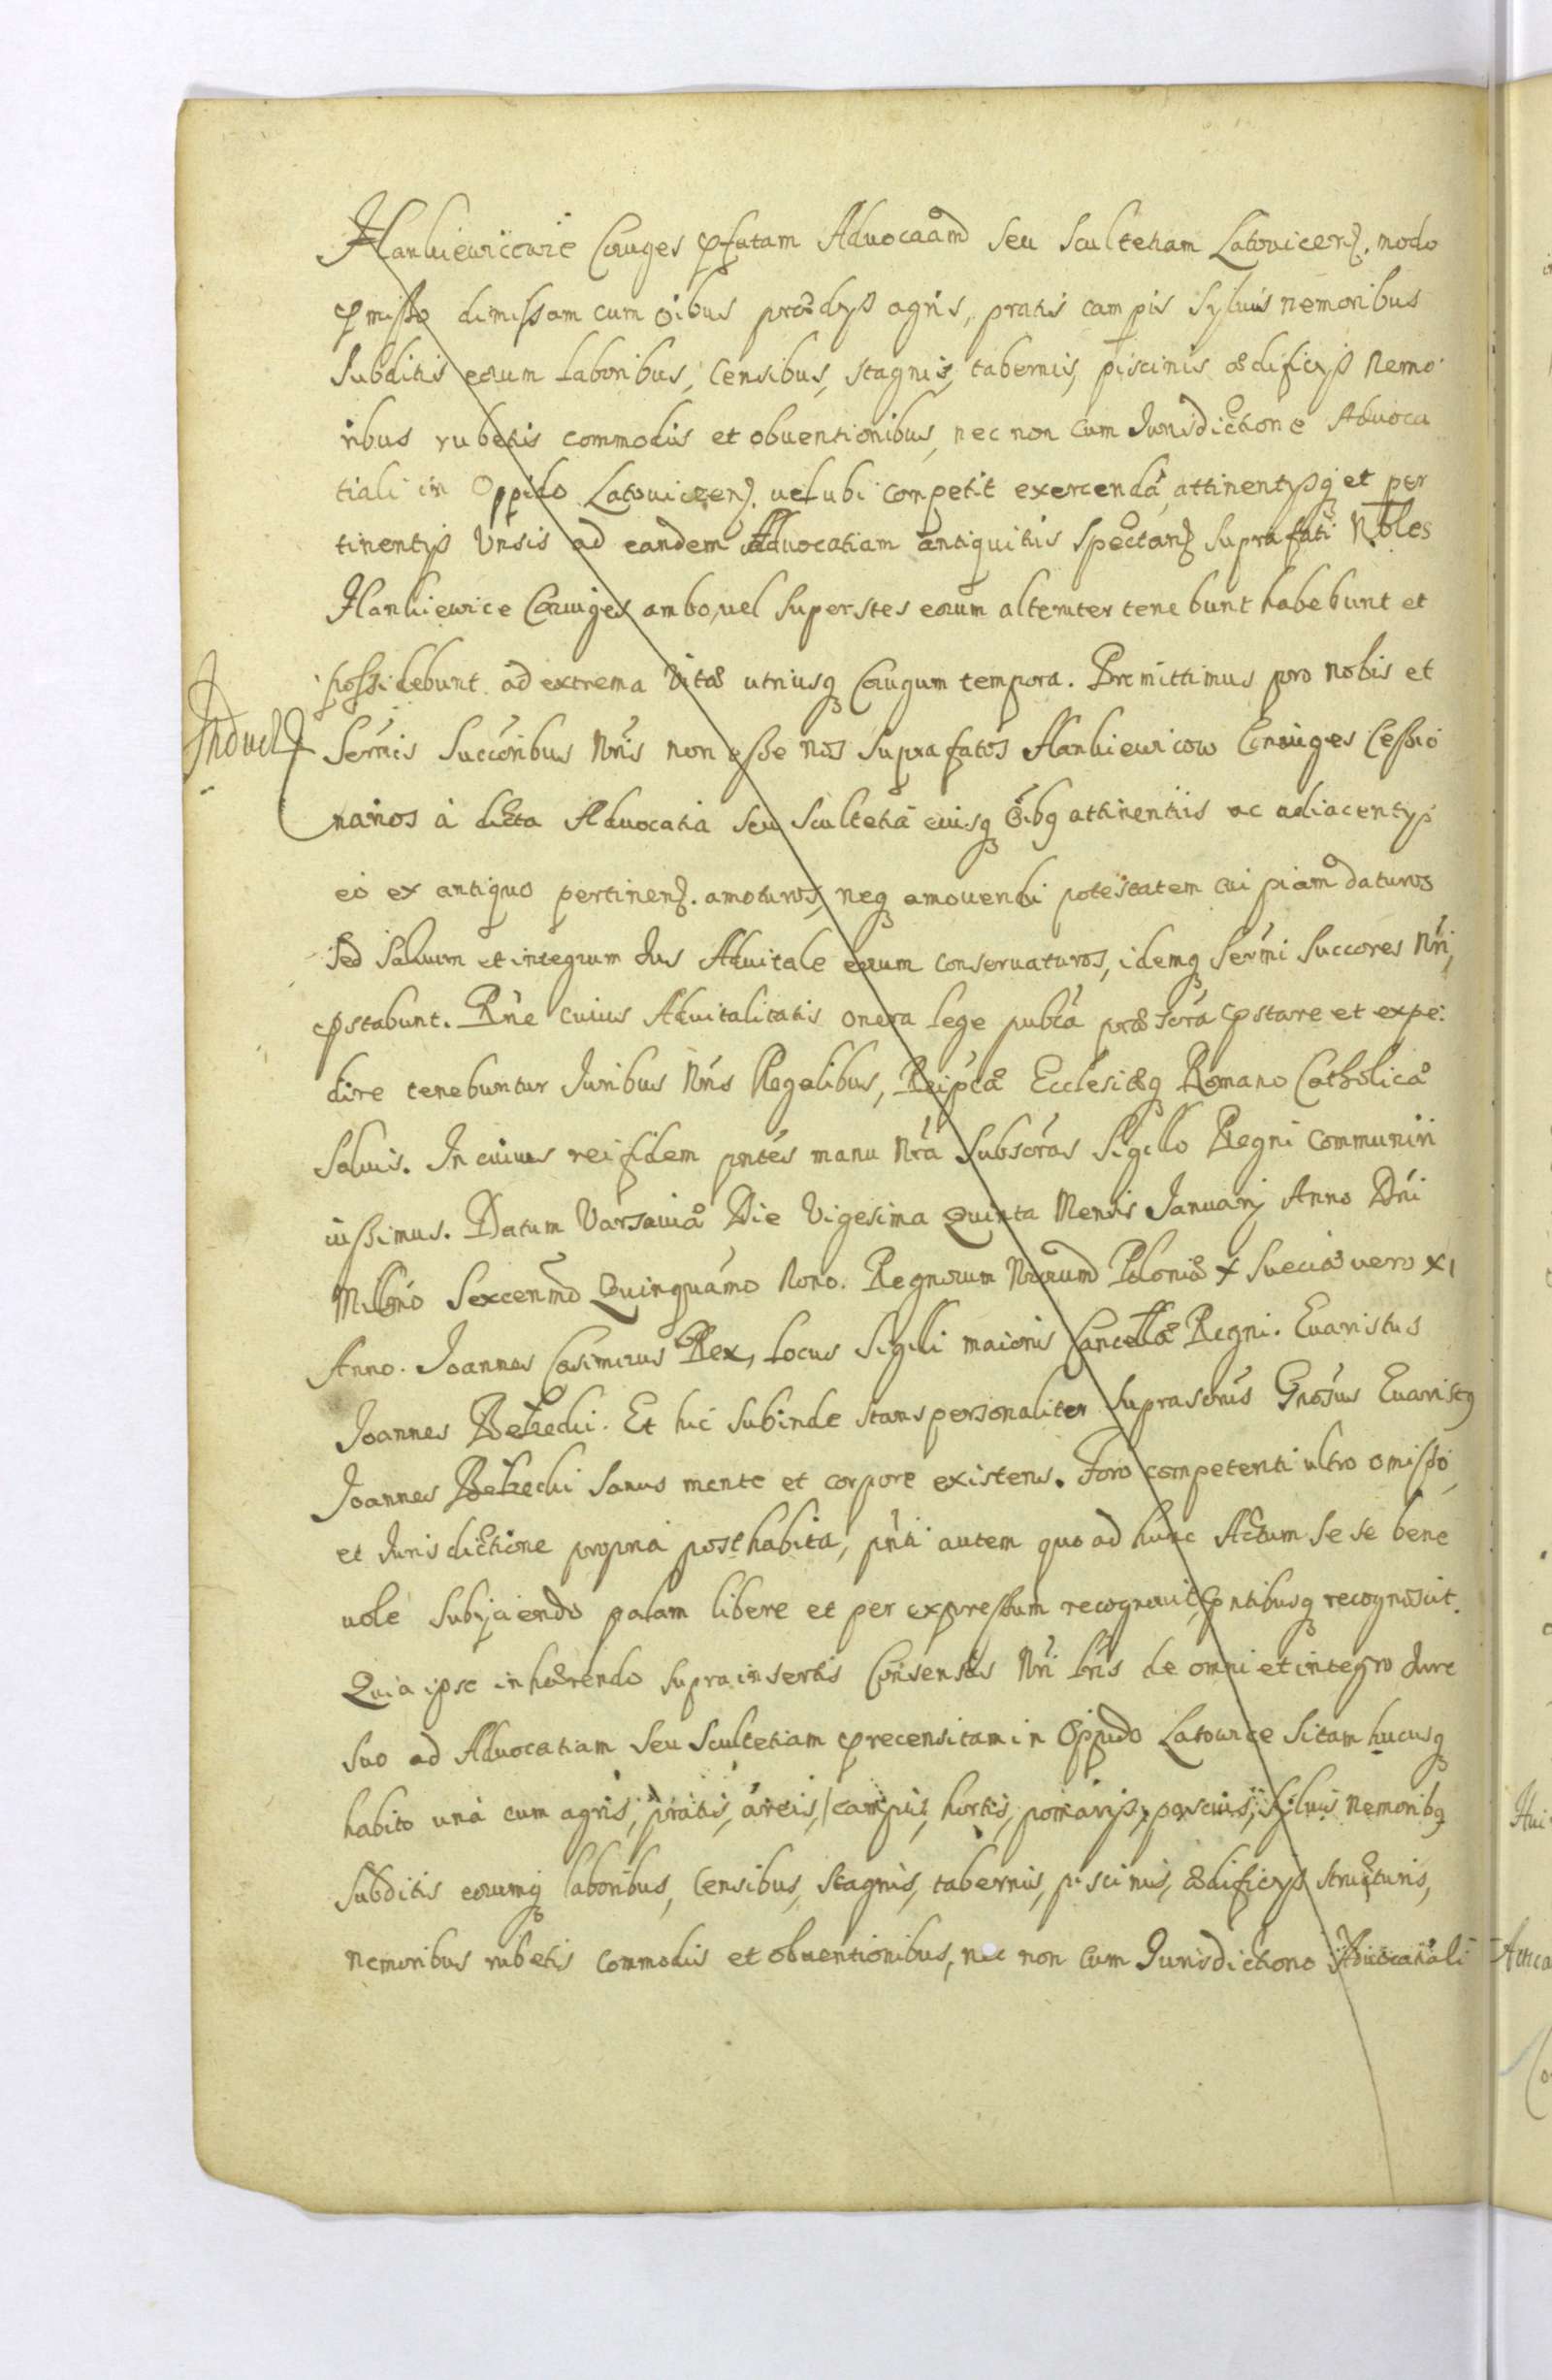 Hankiewicowie Coniuges pfatam Advocaam seu Scultetiam Latovicen. modo
pmisso dimissam cum oibus prædys agris, pratis campis Syluis nemoribus
Subditis eorum laboribus, Censibus, stagnis, tabernis, piscinis ædificys Nemo
ribus rubetis commodis et obuentionibus, nec non cum Jurisdictione Aduoca
tiali in Oppido Latouicen. uel ubi competit exercendá, attinentysq et per
tinentys Vnsis ad eandem Aduocatiam antiquitus spectan Suprafati Nobles
Hankiewice Coniuges ambo, uel superstes eorum alteruter tenebunt habebunt et
possidebunt ad extrema Vitæ utriusq Coniugum tempora. Promittimus pro nobis et
Induct
Sermis Succoribus Nris non esse nos suprafatos Hankiewicow Coniuges Cessio
narios à dicta Aduocatia seu Scultetia eiusq oibq attinentiis ac adiacentys
eó ex antiquo pertinen. amoturos, neq amouendi potestatem cuipiam daturos
Sed Saluum et integrum Jus Aduitale eorum conseruaturos, idemq Sermi Succores Nri,
pstabunt. Rne cuius Aduitalitatis onera lege publa præscra pstare et expe:
dire tenebuntur Juribus Nris Regalibus, Reipcæ Ecclesiæq Romano Catholicæ
Saluis. In cuius rei fidem pntes manu Nra Subscras Sigillo Regni Communiri
iussimus. Datum Varsauiæ Die Vigesima Quinta Mensis Januarij Anno Dni
Millmo Sexcenmo Quinquamo Nono. Regnorum Nrorum Poloniæ X Sueciæ vero XI
Anno. Joannes Casimirus Rex, Locus Sigilli maioris Cancellæ Regni. Euaristus
Joannes Bełzecki. Et hic subinde stans personaliter suprascrus Gnosus Euaristq
Joannes Bełzecki Sanus mente et corpore existens. Foro competenti ultro omisso,
et Jurisdictione propria posthabita, pnti autem quo ad hunc Actum se se bene
uole subyciendo palam libere et per expressum recognouit, pntibusq recognoscit.
Quia ipse inhærendo supra insertis Consensus Nri lris de omni et integro Jure
Suo ad Aduocatiam seu Scultetiam precensitam in Oppido Latowice sitam hucusq
habito unà cum agris, pratis, areis, campis, hortis, pomarys, pascuis, syluis nemoribq
Subditis eorumq laboribus, Censibus, stagnis, tabernis, piscinis, ædificys structuris,
nemoribus rubetis commodis et obuentionibus, nec non cum Jurisdictione Aduocatiali